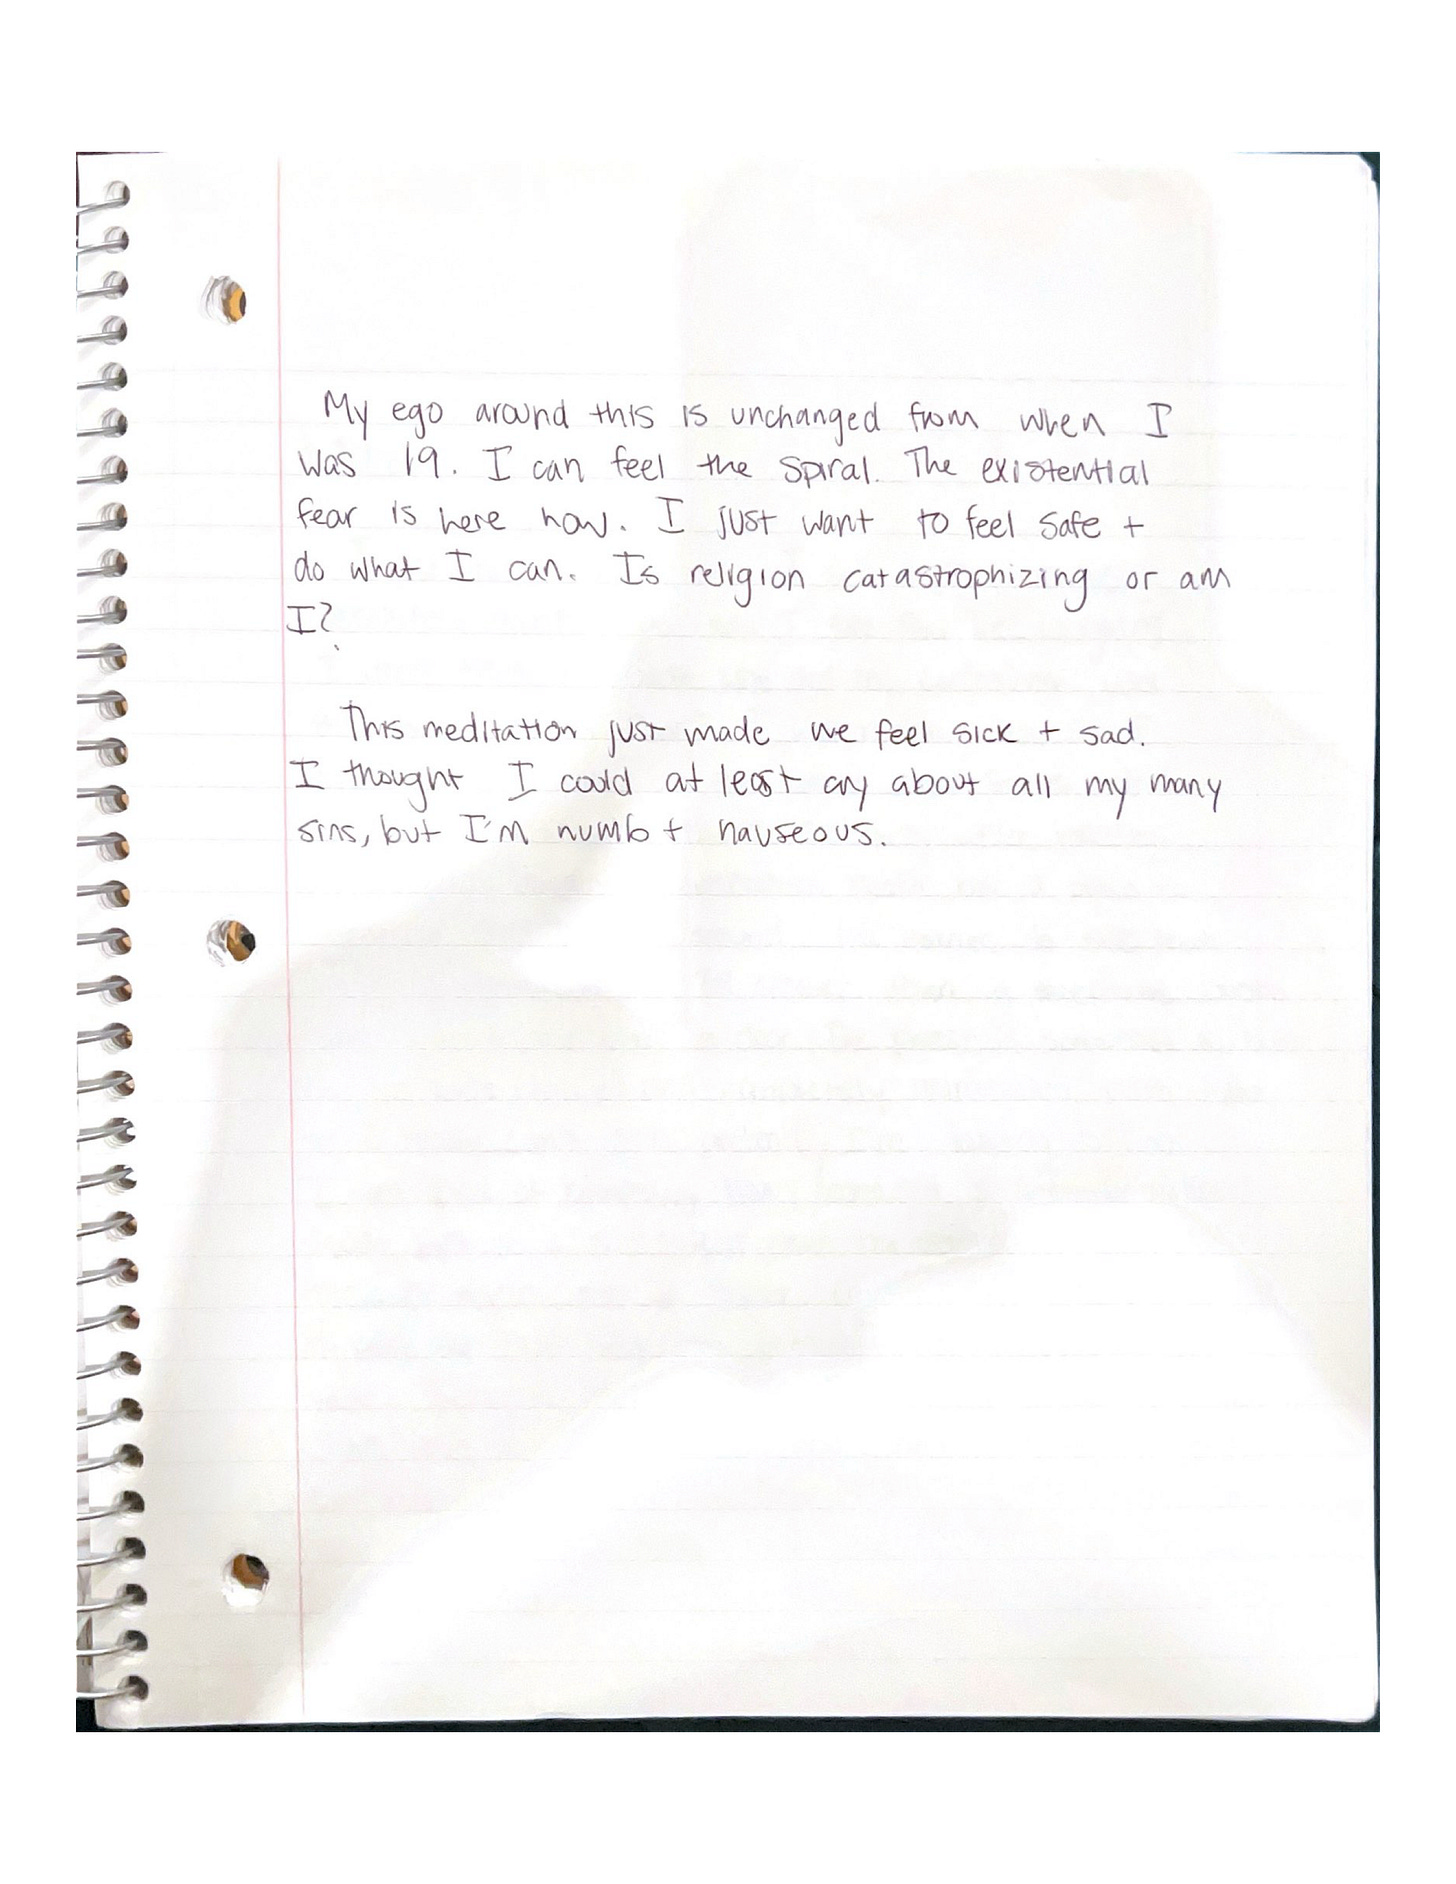 My ego around this is unchanged from when I
was 19. I can feel the spiral. The existential
fear is here now. I just want to feel safe +
do what I can. Is religion catastrophizing or am
I?
This meditation just made me feel sick + sad.
I thought I could at least cry about all my many
sins, but I'm numb + nauseous.